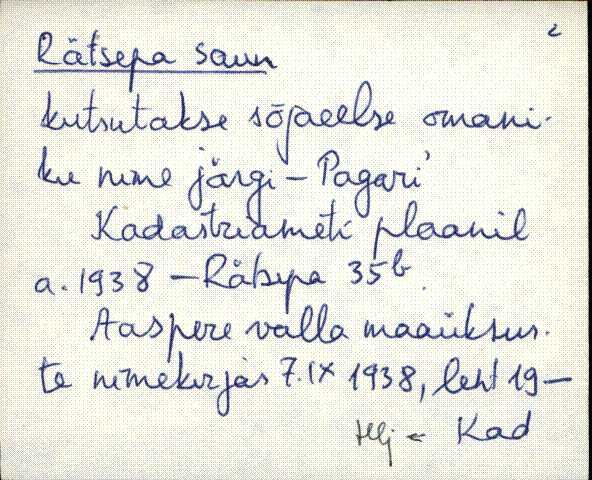 2
Rätsepa saun
kutsutakse sõjaeelse omani-
ku nime järgi – Pagari'
Kadastriameti plaanil
a. 1938 – Rätsepa 35b.
Aaspere valla maaüksus-
te nimekirjas 7.IX 1938, leht 19 –
Hlj < Kad